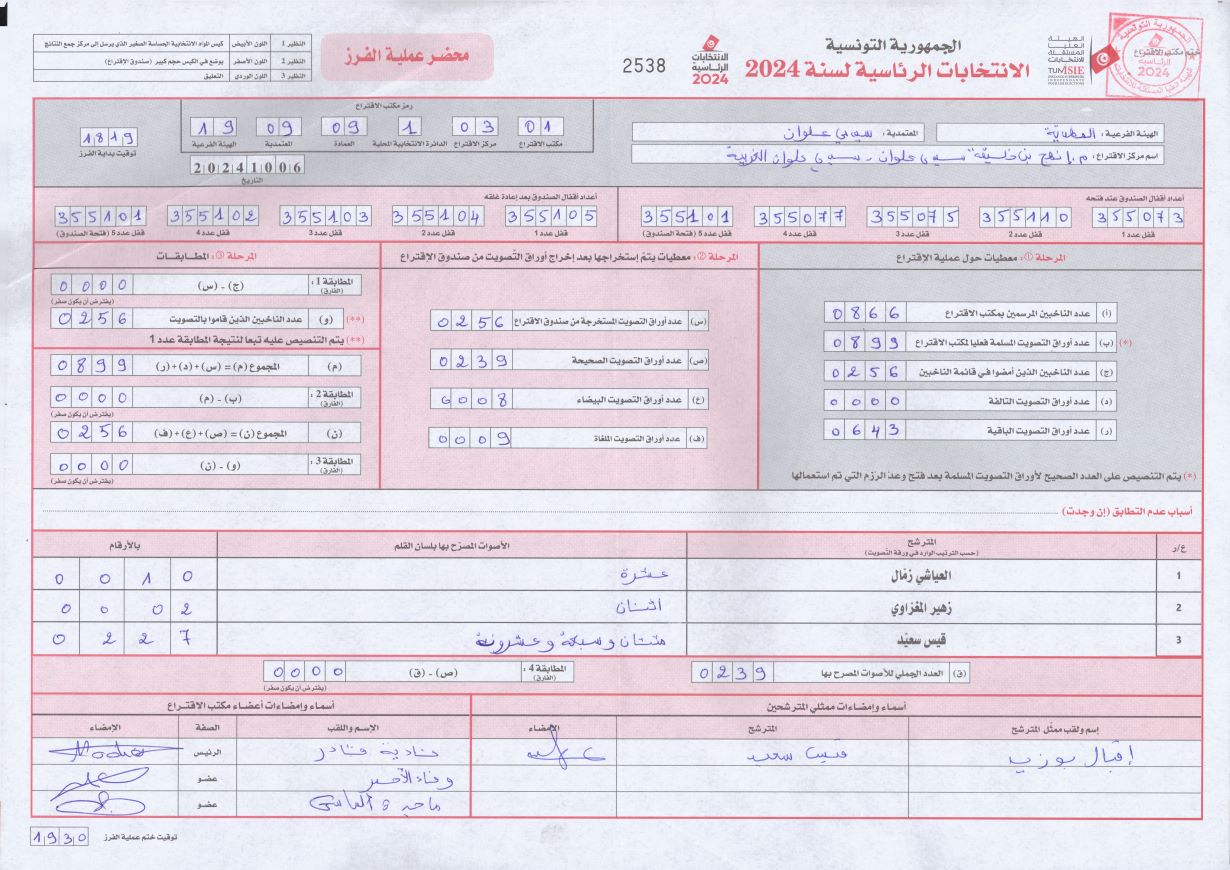 الجمهورية التونسية
الانتخابات الرئاسية لسنة 2024
الهيئة العليا المستقلة للانتخابات
TUNISIE
ختم مكتب الاقتراع
الانتخابات الرئاسية 2024
2538
محضر عملية الفرز
النظير 1 اللون الأبيض كيس المواد الانتخابية الحساسة الصغير الذي يرسل إلى مركز جمع النتائج
النظير 2 اللون الأصفر يوضع في الكيس حجم كبير (صندوق الإقتراع)
النظير 3 اللون الوردي التعليق
الهيئة الفرعية : المهدية
المعتمدية : سيدي علوان
اسم مركز الاقتراع : م.إ نهج بن خليفة - سيدي علوان - سيدي علوان الغربية
رمز مكتب الاقتراع
01 03 1 09 09 19
مكتب الاقتراع مركز الاقتراع الدائرة الانتخابية المحلية العمادة المعتمدية الهيئة الفرعية
20241006
التاريخ
1819
توقيت بداية الفرز
أعداد أقفال الصندوق عند فتحه
355073 355110 355075 355077 355101
قفل عدد 1 قفل عدد 2 قفل عدد 3 قفل عدد 4 قفل عدد 5 (فتحة الصندوق)
أعداد أقفال الصندوق بعد إعادة غلقه
355105 355104 355103 355102 355101
قفل عدد 1 قفل عدد 2 قفل عدد 3 قفل عدد 4 قفل عدد 5 (فتحة الصندوق)
المرحلة ①: معطيات حول عملية الاقتراع
(أ) عدد الناخبين المرسمين بمكتب الاقتراع 0866
(*) (ب) عدد أوراق التصويت المسلمة فعليا لمكتب الاقتراع 0899
(ج) عدد الناخبين الذين أمضوا في قائمة الناخبين 0256
(د) عدد أوراق التصويت التالفة 0000
(ر) عدد أوراق التصويت الباقية 0643
(*) يتم التنصيص على العدد الصحيح لأوراق التصويت المسلمة بعد فتح وعد الرزم التي تم استعمالها
المرحلة ②: معطيات يتم إستخراجها بعد إخراج أوراق التصويت من صندوق الإقتراع
(س) عدد أوراق التصويت المستخرجة من صندوق الاقتراع 0256
(ص) عدد أوراق التصويت الصحيحة 0239
(ع) عدد أوراق التصويت البيضاء 0008
(ف) عدد أوراق التصويت الملغاة 0009
المرحلة ③: المطابقات
المطابقة 1 : (الفارق) (ج) - (س) 0000
(يفترض أن يكون صفر)
(**) (و) عدد الناخبين الذين قاموا بالتصويت 0256
(**) يتم التنصيص عليه تبعا لنتيجة المطابقة عدد 1
(م) المجموع (م) = (س) + (د) + (ر) 0899
المطابقة 2 : (الفارق) (ب) - (م) 0000
(يفترض أن يكون صفر)
(ن) المجموع (ن) = (ص) + (ع) + (ف) 0256
المطابقة 3 : (الفارق) (و) - (ن) 0000
(يفترض أن يكون صفر)
أسباب عدم التطابق (إن وجدت)
ع/ر المترشح (حسب الترتيب الوارد في ورقة التصويت) الأصوات المصرح بها بلسان القلم بالأرقام
1 العياشي زمّال عشرة 0010
2 زهير المغزاوي اثنان 0002
3 قيس سعيّد مئتان وسبعة وعشرون 0227
(ق) العدد الجملي للأصوات المصرح بها 0239
المطابقة 4 : (الفارق) (ص) - (ق) 0000
(يفترض أن يكون صفر)
أسماء وإمضاءات ممثلي المترشحين
إسم ولقب ممثل المترشح المترشح الإمضاء
إقبال بوزيد قيس سعيد
أسماء وإمضاءات أعضاء مكتب الاقتراع
الإسم واللقب الصفة الإمضاء
نادية قادر الرئيس
وفاء الأخضر عضو
ماجدة العباسي عضو
توقيت ختم عملية الفرز 1930